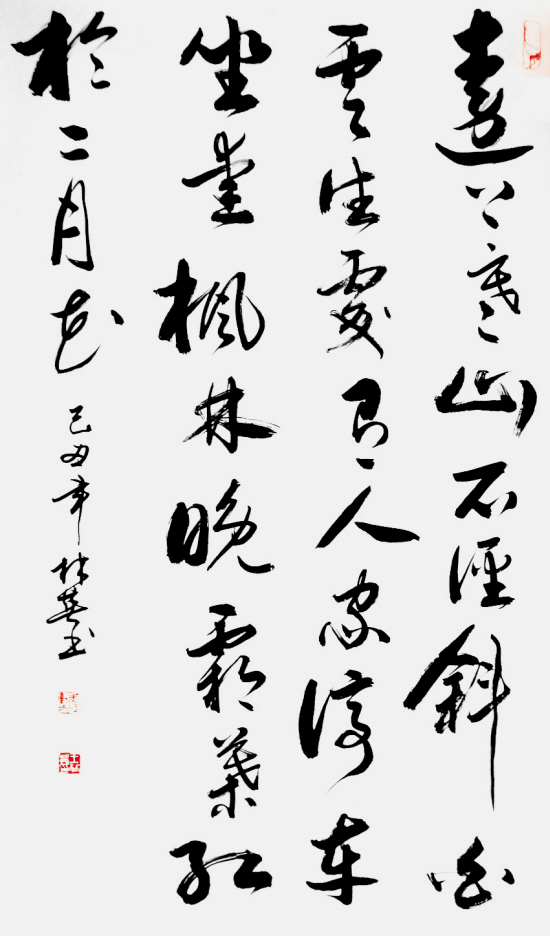 遠上寒山石徑斜白
雲生處有人家停车
坐愛楓林晚霜葉红
於二月花 己丑年 书